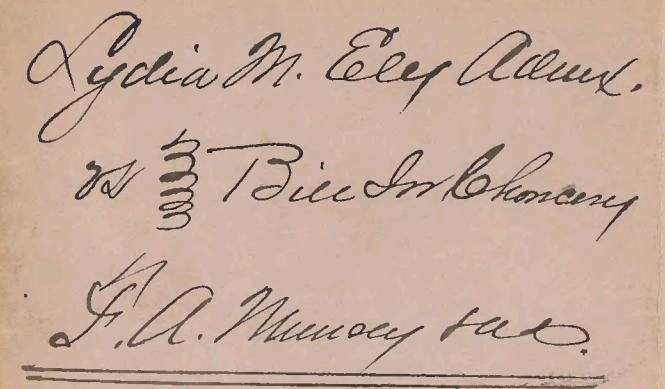 Lydia M. Ely Admx.
vs Bill In Chancery
F. A. Munsey et al.